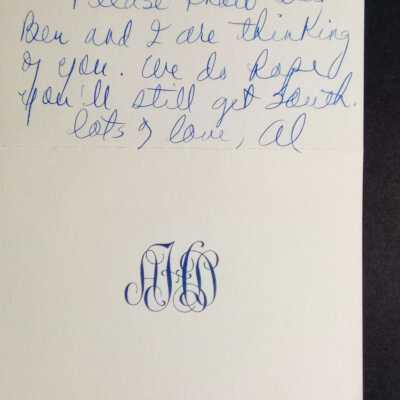 Please know
Ben and I are thinking
of you. We do hope
you'll still get South.
lots of love, Al